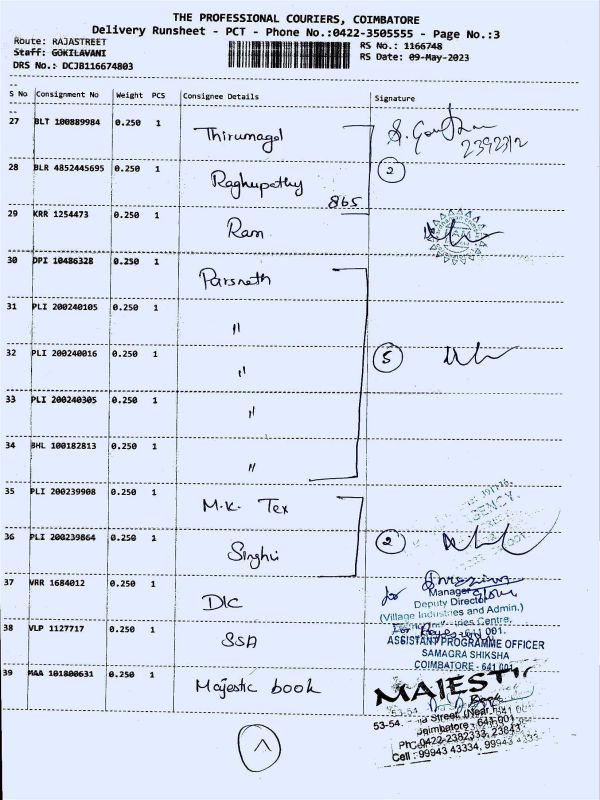 THE PROFESSIONAL COURIERS, COIMBATORE
Delivery Runsheet - PCT - Phone No.:0422-3505555 - Page No.:3
Route: RAJASTREET
RS No.: 1166748
Staff: GOKILAVANI
RS Date: 09-May-2023
DRS No.: DCJB116674803
S No Consignment No Weight PCS Consignee Details Signature
27 BLT 100889984 0.250 1 Thirumagal
2392312
28 BLR 4852445695 0.250 1 Raghupathy 2
865
29 KRR 1254473 0.250 1 Ram
30 DPI 10486328 0.250 1 Parsnath
31 PLI 200240105 0.250 1 "
32 PLI 200240016 0.250 1 " 5
33 PLI 200240305 0.250 1 "
34 BHL 100182813 0.250 1 "
35 PLI 200239908 0.250 1 M.K. Tex
GENCY.
36 PLI 200239864 0.250 1 Singhvi 2
37 VRR 1684012 0.250 1 DIC
for
Manager
Deputy Director
(Village Industries and Admin.)
38 VLP 1127717 0.250 1 SSA
641 001.
ASSISTANT PROGRAMME OFFICER
SAMAGRA SHIKSHA
COIMBATORE - 641 001
39 MAA 101800631 0.250 1 Majestic book
MAJESTIC
53-54, Street, (Near
Coimbatore - 641 001
Ph: 0422-2382333,
Cell : 99943 43334, 99943